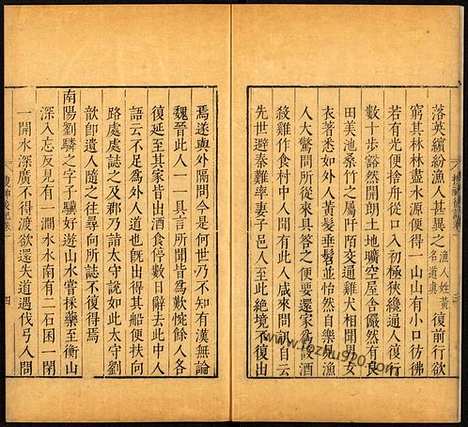 落英繽紛漁人甚異之漁人姓黃名道真復前行欲
窮其林林盡水源便得一山山有小口彷彿
若有光便捨舟從口入初極狹纔通人復行
數十步豁然開朗土地曠空屋舍儼然有良
田美池桑竹之屬阡陌交通雞犬相聞男女
衣著悉如外人黃髮垂髫並怡然自樂見漁
人大驚問所從來具答之便要還家為設酒
殺雞作食村中人聞有此人咸來問訊自云
先世避秦難率妻子邑人至此絕境不復出
焉遂與外隔問今是何世乃不知有漢無論
魏晉此人一一具言所聞皆為歎惋餘人各
復延至其家皆出酒食停數日辭去此中人
語云不足為外人道也既出得其船便扶向
路處處誌之及郡乃詣太守說如此太守劉
歆即遣人隨之往尋向所誌不復得焉
南陽劉驎之字子驥好遊山水嘗採藥至衡山
深入忘反見有一澗水水南有二石囷一閉
一開水深廣不得渡欲還失道遇伐弓人問
四
www.tqzhu920.com